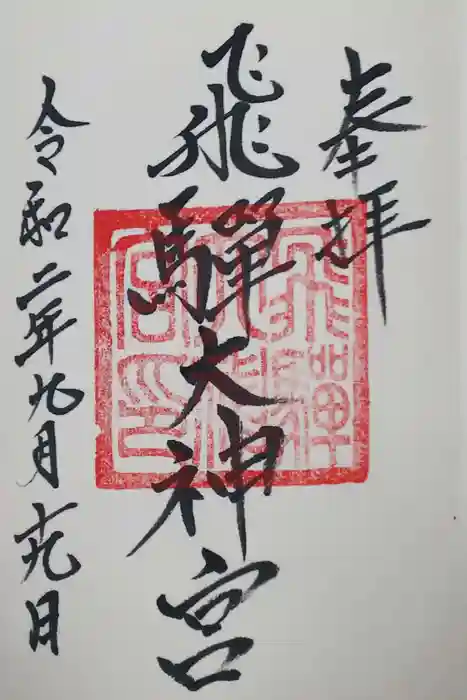 奉拝
飛騨大神宮
令和二年九月十九日